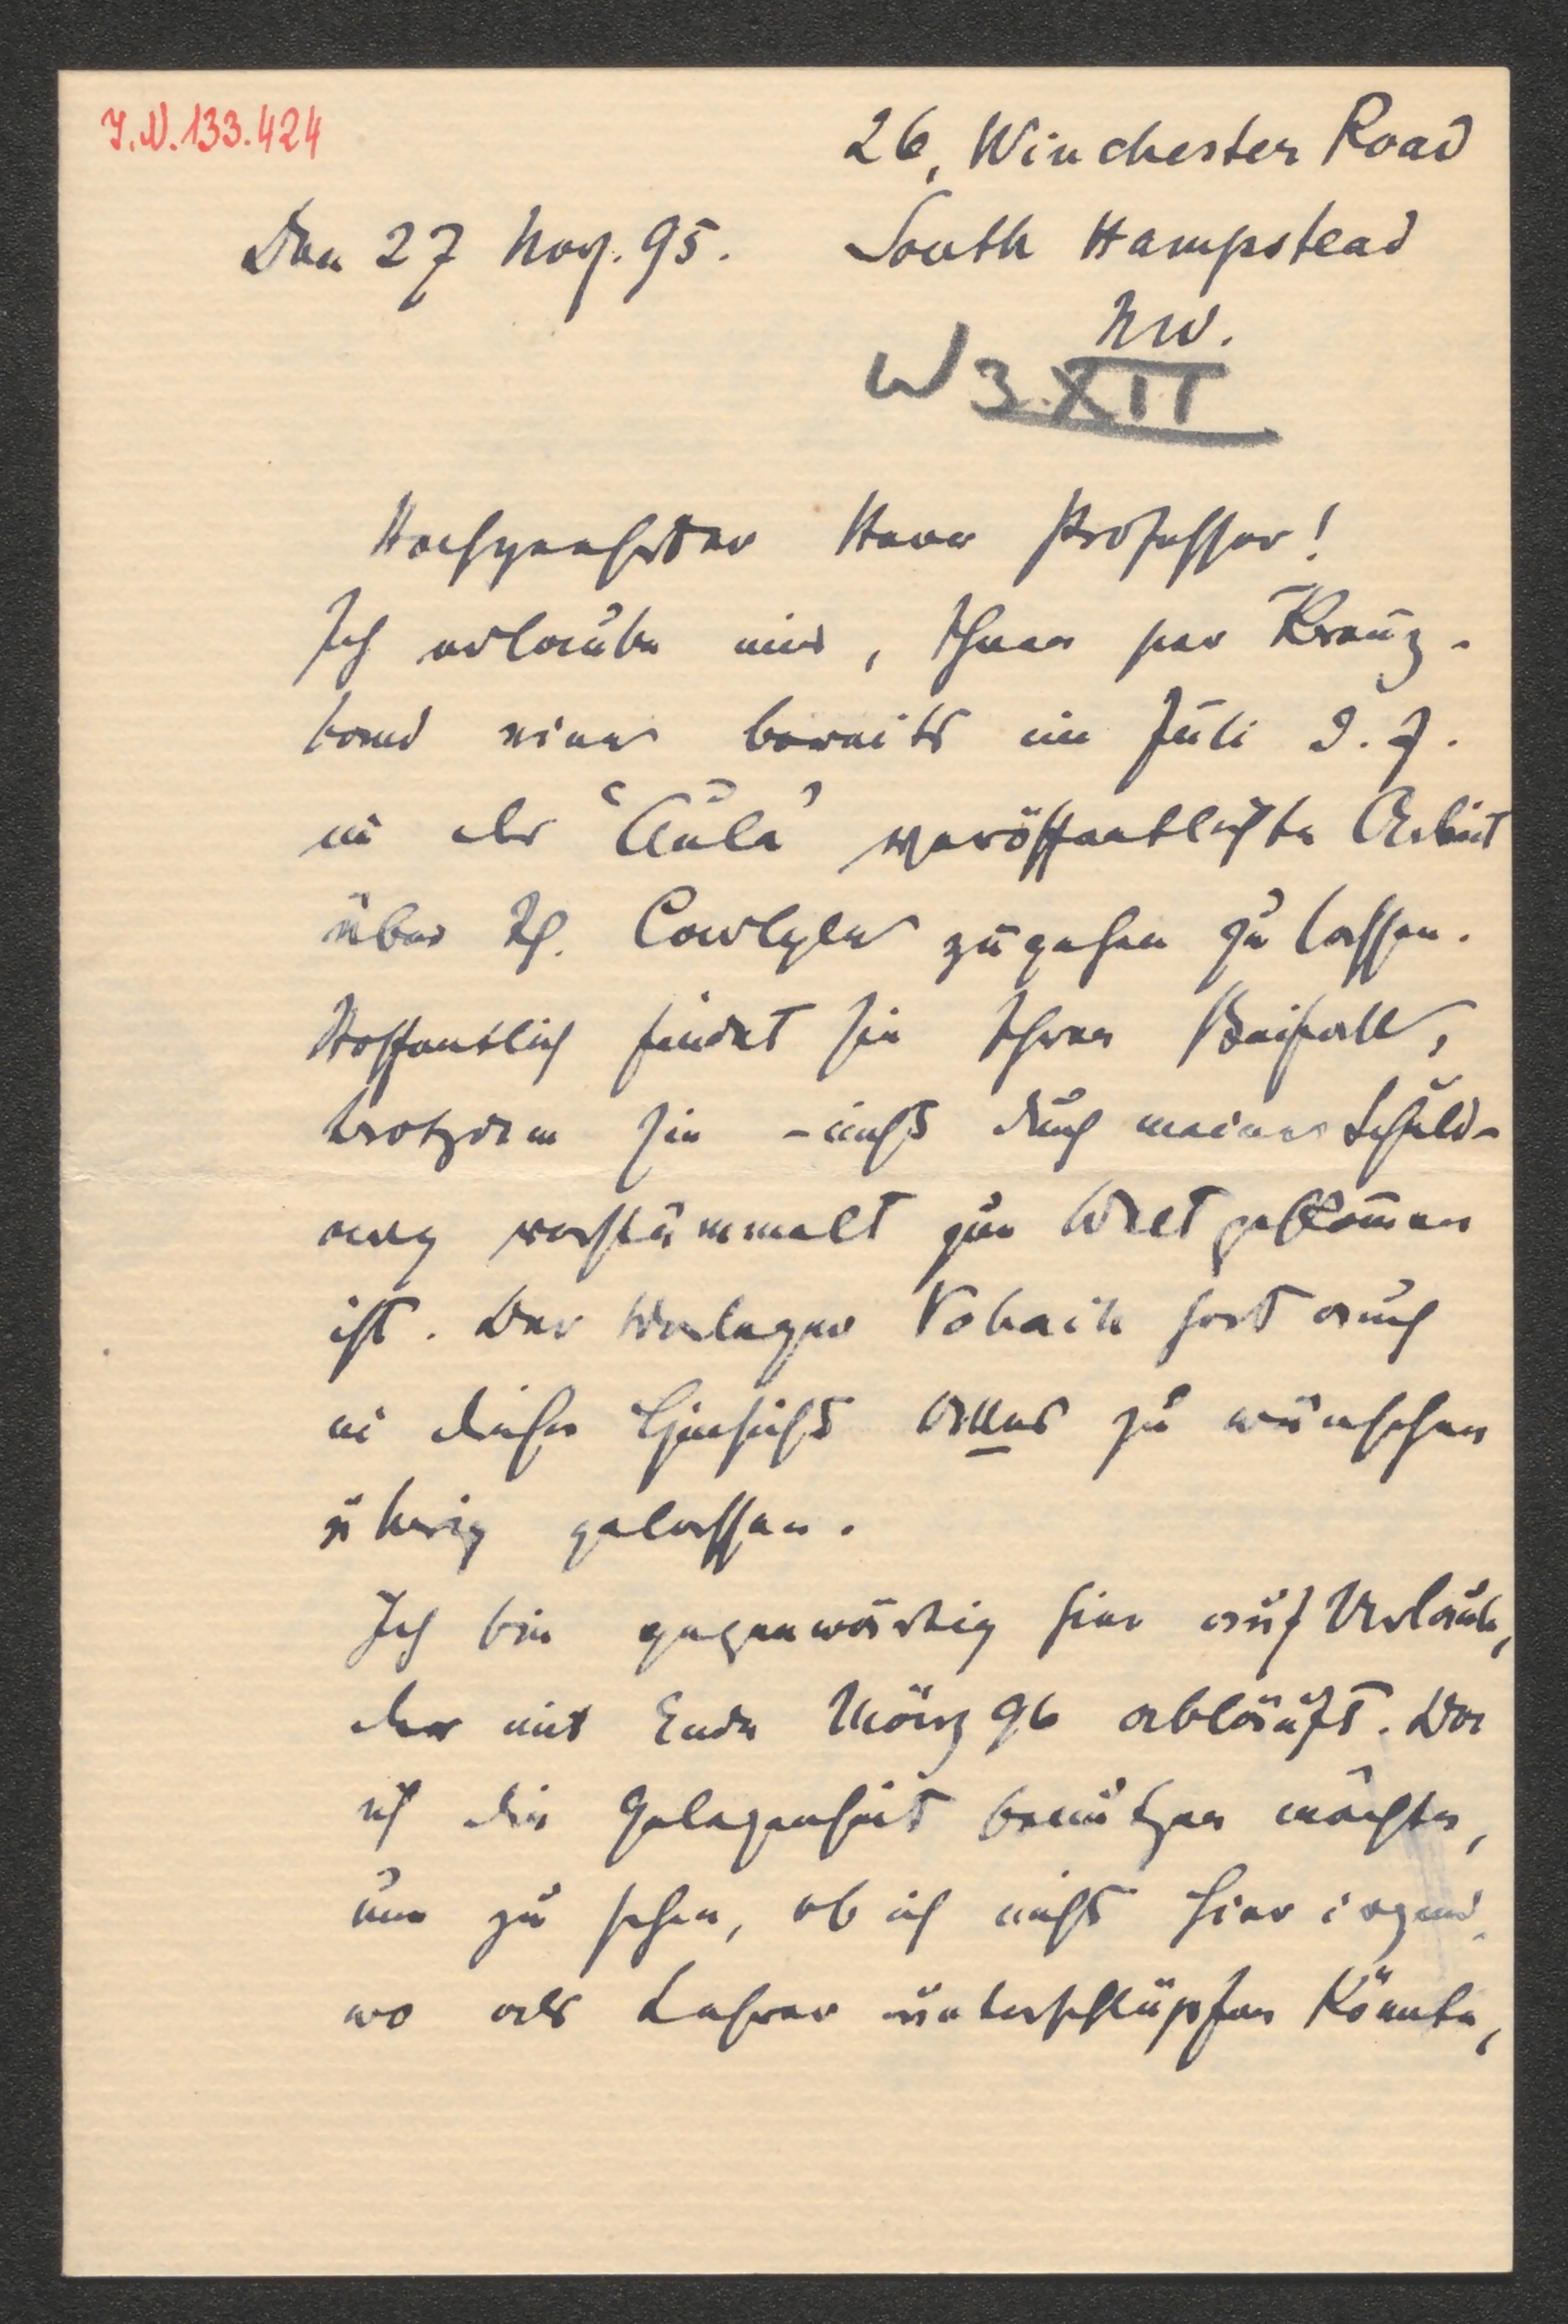 J.N. 133.424
26, Winchester Road
Den 27 Nov. 95. South Hampstead
NW.
W 3.XII
Hochgeehrter Herr Professor!
Ich erlaube mir, Ihnen per Kreuz-
band eine bereits im Juli d. J.
in der "Aula" veröffentlichte Arbeit
über Th. Carlyle zugehen zu lassen.
Hoffentlich findet sie Ihren Beifall,
trotzdem sie - nicht durch meine Schuld -
arg verstümmelt zur Welt gekommen
ist. Der Verleger Vobach hat auch
in dieser Hinsicht alles zu wünschen
übrig gelassen.
Ich bin gegenwärtig hier auf Urlaub,
der mit Ende März 96 abläuft. Da
ich die Gelegenheit benützen möchte,
um zu sehen, ob ich nicht hier irgend-
wo als Lehrer unterschlüpfen könnte,